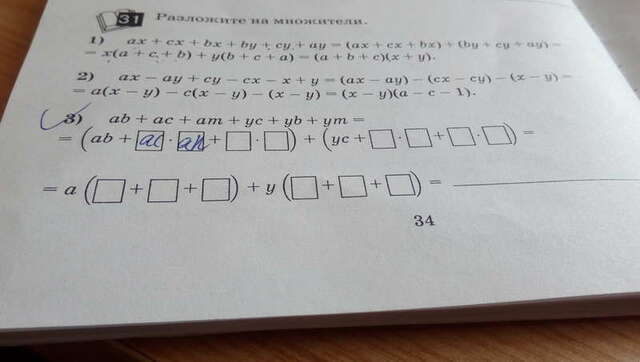 31 Разложите на множители.
1) ax + cx + bx + by + cy + ay = (ax + cx + bx) + (by + cy + ay) =
= x(a + c + b) + y(b + c + a) = (a + b + c)(x + y).
2) ax − ay + cy − cx − x + y = (ax − ay) − (cx − cy) − (x − y) =
= a(x − y) − c(x − y) − (x − y) = (x − y)(a − c − 1).
3) ab + ac + am + yc + yb + ym =
= (ab + ac · + □ · □) + (yc + □ · □ + □ · □) =
= a (□ + □ + □) + y (□ + □ + □) =
34